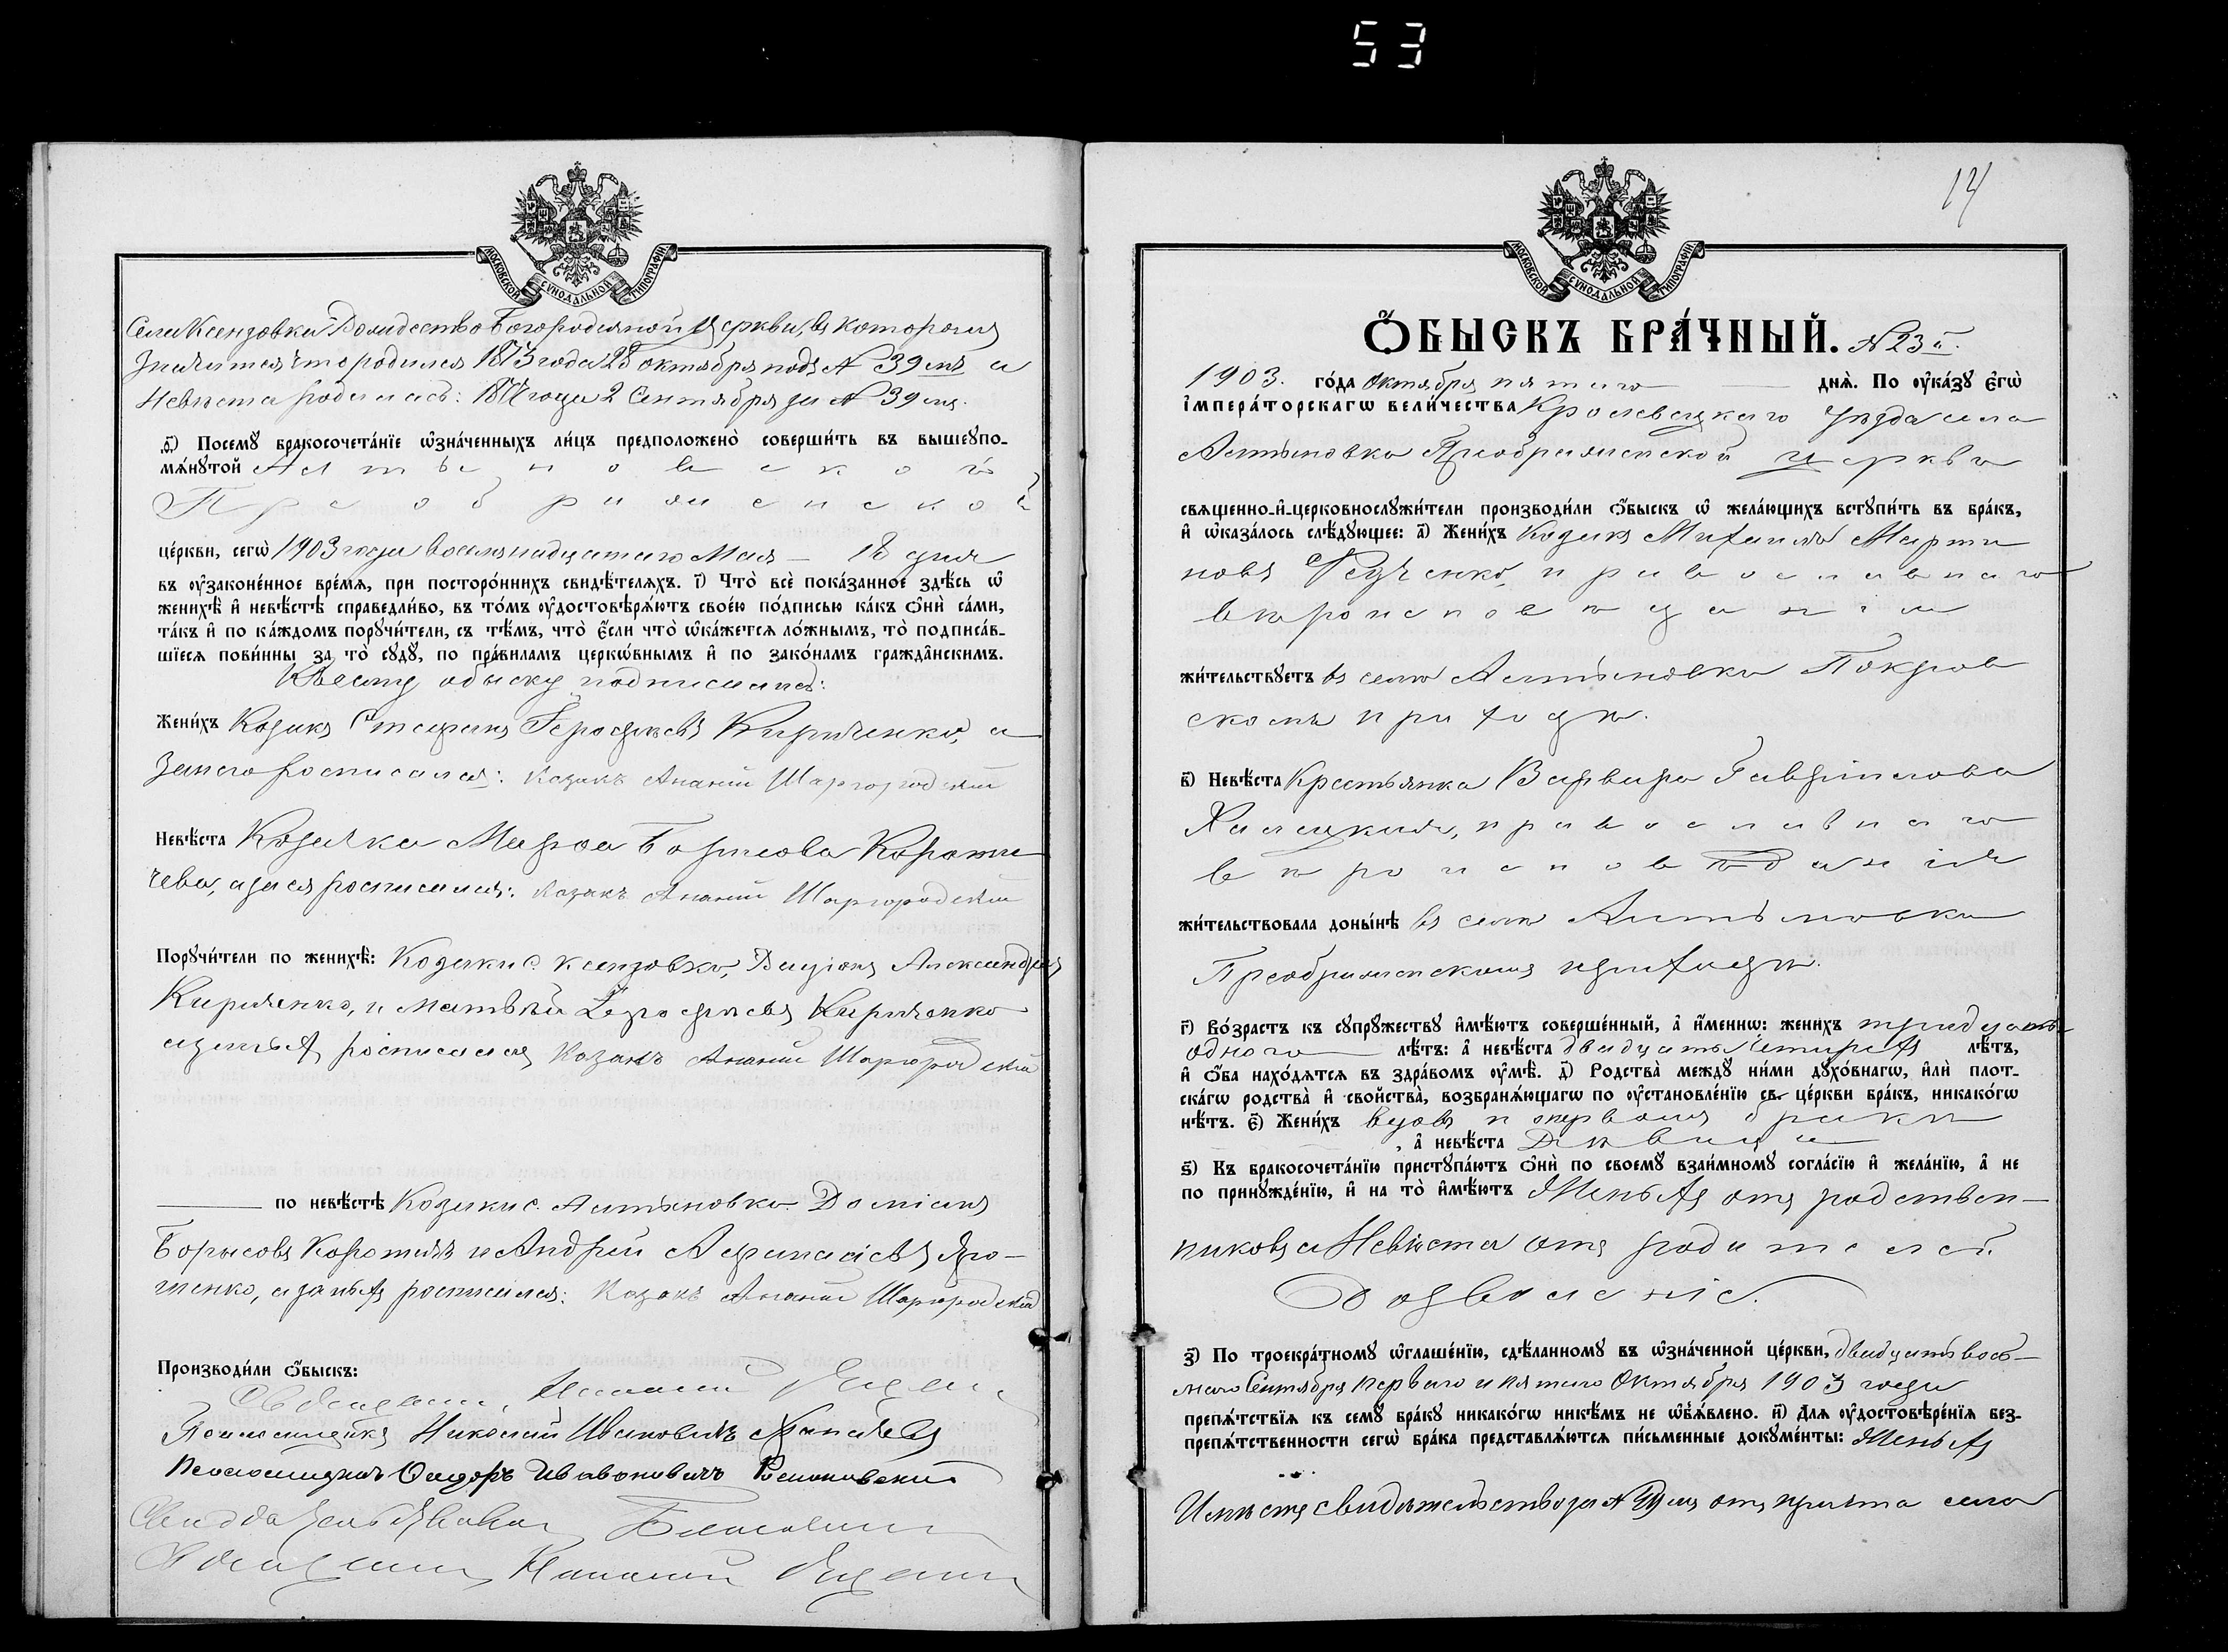 53
МОСКОВСКОЙ СѴНОДАЛЬНОЙ ТИПОГРАФІИ.
Села Ксензовки Рождество Богородичной церкви, въ которомъ
Значится что родился 1873 года 28 октября подъ № 39мъ а
Невѣста родилась: 187 года 2 Сентября за № 39мъ.
Ѳ҃) Посемꙋ̀ бракосочета́нїе ѡ҆зна́ченныхъ ли́цъ предположено̀ соверши́ть въ вышеꙋпо-
мѧ́нꙋтой Алтыновской
Преображенской
це́ркви, сегѡ̀ 1903 года восемнадцатаго Мая – 18 дня
въ ᲂу҆законе́нное вре́мѧ, при посторо́ннихъ свидѣ́телѧхъ. І҃) Что̀ всѐ пока́занное здѣ́сь ѡ҆
женихѣ̀ и҆ невѣ́стѣ справедли́во, въ то́мъ ᲂу҆достовѣрѧ́ютъ свое́ю по́дписью ка́къ ѻ҆нѝ са́ми,
та́къ и҆ по ка́ждомъ порꙋчи́тели, съ тѣ́мъ, что̀ є҆́сли что̀ ѡ҆ка́жетсѧ ло́жнымъ, то̀ подписа́в-
шїесѧ пови́нны за то̀ сꙋдꙋ̀, по пра́виламъ церкѡ́внымъ и҆ по зако́намъ гражда̑нскимъ.
К сему обыску подписались:
Жени́хъ Козакъ Стефанъ Ерофѣевъ Кириченко, а
за него росписался: Казакъ Ананій Шаргородскій
Невѣ́ста Козачка Марфа Борисова Коротче
чева, а за ея росписался: Казакъ Ананій Шаргородскій
Порꙋчи́тели по женихѣ̀: Козаки с. Ксензовки, Александровъ
Кириченко, и Матвѣй Ерофѣевъ Кириченко
а за нихъ росписался Казакъ Ананій Шаргородскій
по невѣ́стѣ Козаки с. Алтыновки Доміанъ
Борисовъ и Андрей Афанасіевъ Яро-
шенко, а за нихъ росписался: Казакъ Ананій Шаргородскій
Производи́ли ѻ҆́быскъ:
Священникъ
Псаломщикъ Николай Ивановичъ
Псаломщикъ
Священникъ
14
МОСКОВСКОЙ СѴНОДАЛЬНОЙ ТИПОГРАФІИ.
Ѻ҆́БЫСКЪ БРА́ЧНЫЙ. № 23й.
1903. го́да Октября пятаго днѧ̀. По ᲂу҆ка́зꙋ є҆гѡ̀
і҆мпера́торскагѡ вели́чества Кролевецкаго Уѣзда села
Алтыновки Преображенской церкви
свѧщенно-и҆-церковнослꙋжи́тели производи́ли ѻ҆́быскъ ѡ҆ жела́ющихъ встꙋпи́ть въ бра́къ,
и҆ ѡ҆каза́лось слѣ́дꙋющее: а҃) Жени́хъ Козакъ Михаилъ Марти
новъ православнаго
вѣроисповѣданія
жи́тельствꙋетъ въ селѣ Алтыновки Покров
скомъ приходѣ.
в҃) Невѣ́ста Крестьянка Варвара Гавріилова
православнаго
вѣроисповѣданія
жи́тельствовала доны́нѣ въ селѣ Алтыновки
Преображенскомъ приходѣ.
г҃) Во́зрастъ къ сꙋпрꙋ́жествꙋ и҆мѣ́ютъ соверше́нный, а҆ и҆́меннѡ: жени́хъ тридцать
одного лѣ́тъ: а҆ невѣ́ста двадцать четырехъ лѣ́тъ,
и҆ ѻ҆́ба нахо́дѧтсѧ въ здра́вомъ ᲂу҆мѣ̀. д҃) Родства̀ междꙋ̀ ни́ми дꙋхо́внагѡ, и҆лѝ плот-
ска́гѡ родства̀ и҆ сво́йства̀, возбранѧ́ющагѡ по ᲂу҆становле́нїю св. це́ркви бра́къ, никако́гѡ
нѣ́тъ. є҃) Жени́хъ вдовъ первомъ бракѣ
, а҆ невѣ́ста Дѣвица
ѕ҃) Къ бракосочета́нїю пристꙋпа́ютъ ѻ҆нѝ по своемꙋ̀ взаи́мномꙋ согла́сїю и҆ жела́нїю, а҆ не
по принꙋжде́нїю, и҆ на то̀ и҆мѣ́ютъ Женихъ отъ родствен-
никовъ а Невѣста отъ родителей
Дозволеніе.
з҃) По троекра́тномꙋ ѡ҆глаше́нїю, сдѣ́ланномꙋ въ ѡ҆зна́ченной це́ркви, двадцать вось-
маго Сентября перваго и пятаго Октября 1903 года
препѧ́тствїѧ къ семꙋ̀ бра́кꙋ никако́гѡ никѣ́мъ не ѡ҆б̾ѧ́влено. и҃) Длѧ ᲂу҆достовѣре́нїѧ без-
препѧ́тственности сегѡ̀ бра́ка представлѧ́ютсѧ пи́сьменные докꙋме́нты: Женихъ
Имѣетъ свидѣтельство за № отъ причта села